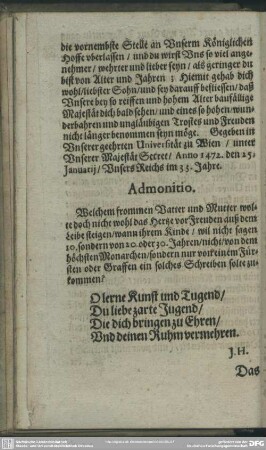 die vornembste Stelle an Unserm Königlichen
Hoffe uberlassen / und du wirst Uns so viel ange-
nehmer / wehrter und lieber seyn / als geringer du
bist von Alter und Jahren ; Hiemit gehab dich
wohl / liebster Sohn / und sey darauff beflissen / daß
Unsere bey so reiffen und hohem Alter baufällige
Majestät dich bald sehen / und eines so hohen wun-
derbahren und ungläubigen Trostes und Freuden
nicht länger benommen seyn möge. Gegeben in
Unserer geehrten Universität zu Wien / unter
Unserer Majestät Secret / Anno 1472. den 25.
Januarij / Unsers Reichs im 33. Jahre.
Admonitio.
Welchem frommen Vatter und Mutter wol-
te doch nicht wohl das Hertze vor Freuden auß dem
Leibe steigen / wann ihrem Kinde / wil nicht sagen
10. sondern von 20. oder 30. Jahren / nicht / von dem
höchsten Monarchen / sondern nur von einem Für-
sten oder Graffen ein solches Schreiben solte zu-
kommen?
O lerne Kunst und Tugend /
Du liebe zarte Jugend /
Die dich bringen zu Ehren /
Und deinen Ruhm vermehren.
J.H.
Das
DFG